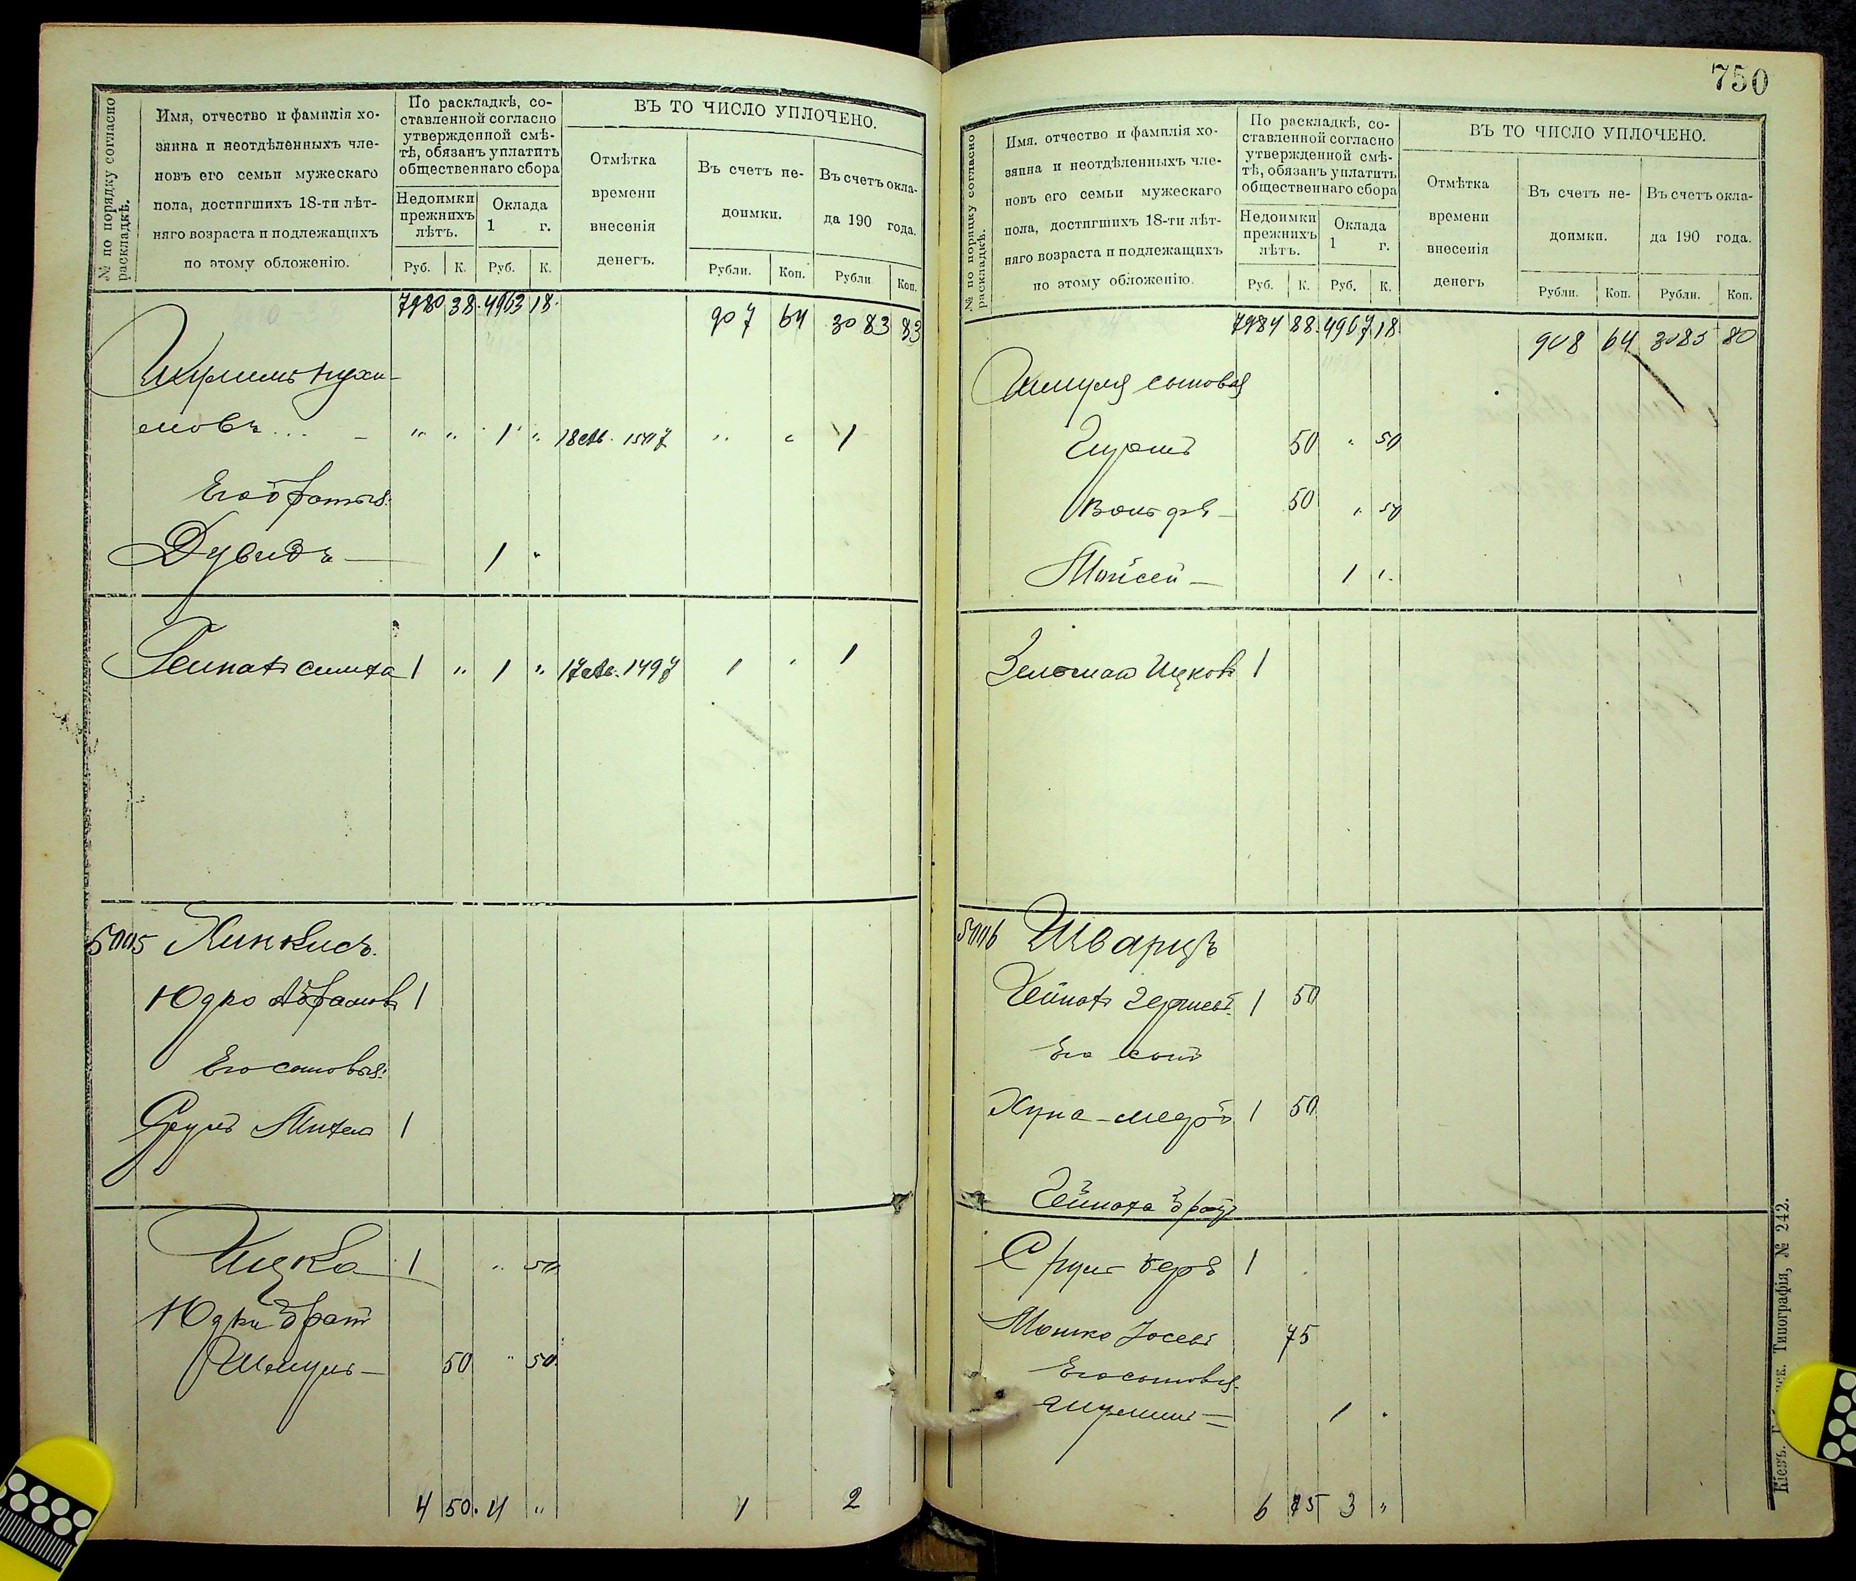 № по порядку согласно раскладкѣ.
Имя, отчество и фамилія хо-
зяина и неотдѣленныхъ чле-
новъ его семьи мужескаго
пола, достигшихъ 18-ти лѣт-
няго возраста и подлежащихъ
по этому обложенію.
По раскладкѣ, со-
ставленной согласно
утвержденной смѣ-
тѣ, обязанъ уплатить
общественнаго сбора
Недоимки прежнихъ лѣтъ.
Оклада 1 г.
Руб. К. Руб. К.
ВЪ ТО ЧИСЛО УПЛОЧЕНО.
Отмѣтка
времени
внесенія
денегъ.
Въ счетъ не-
доимки.
Въ счетъ окла-
да 190 года.
Рубли. Коп. Рубли Коп.
7980 38 4963 18 907 64 3083 83
мовъ " " 1 " 1 
Его братья:
Дувидъ 1 "
1 " 1 " 1 " 1
5005 Хинкисъ.
Юдко Абрамовъ 1
Его сыновья:
Срулъ 1
Ицко 1 " 50
Юдки братъ
Шмуль 50 " 50
4 50 4 " 1 2
750
№ по порядку согласно раскладкѣ.
Имя. отчество и фамилія хо-
зяина и неотдѣленныхъ чле-
новъ его семьи мужескаго
пола, достигшихъ 18-ти лѣт-
няго возраста и подлежащихъ
по этому обложенію.
По раскладкѣ, со-
ставленной согласно
утвержденной смѣ-
тѣ, обязанъ уплатить
общественнаго сбора
Недоимки прежнихъ лѣтъ.
Оклада 1 г.
Руб. К. Руб. К.
ВЪ ТО ЧИСЛО УПЛОЧЕНО.
Отмѣтка
времени
внесенія
денегъ
Въ счетъ не-
доимки.
Въ счетъ окла-
да 190 года.
Рубли. Коп. Рубли. Коп.
7984 88 4967 18 908 64 3085 80
Шмуля сыновья
50 " 50
Вольфъ 50 " 50
Мойсей 1 "
Зельманъ Ицковъ 1
5006 Шварцъ
Гершев. 1 50
Его сынъ
1 50
братъ
Сруль Беръ 1
Мошко Іосев. 75
Его сыновья
1
6 75 3 "
Типографія, № 242.